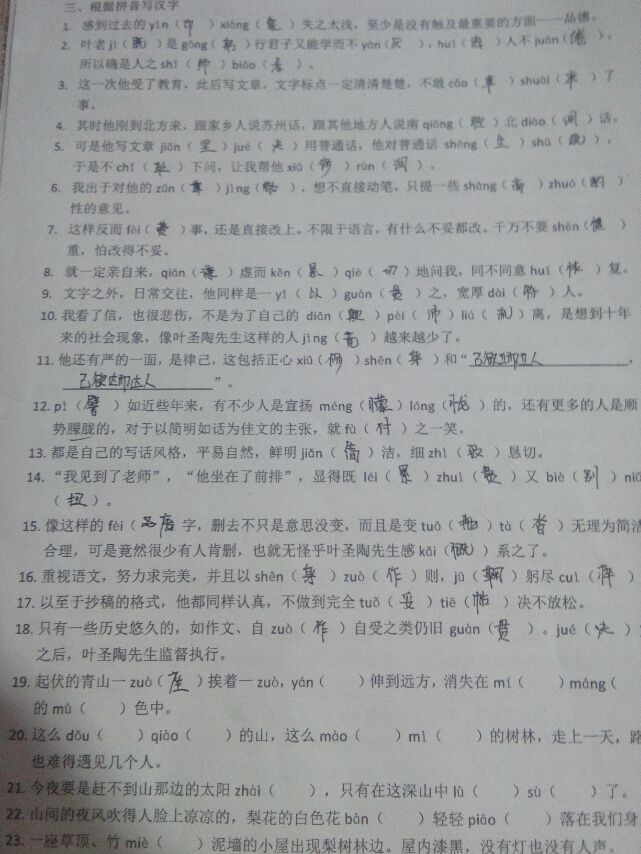 三、根据拼音写汉字
1. 感到过去的yìn（印）xiàng（象）失之太浅，至少是没有触及最重要的方面——品德。
2. 叶老jì（既）是gōng（躬）行君子又能学而不yàn（厌），huì（诲）人不juàn（倦），
所以确是人之shī（师）biǎo（表）。
3. 这一次他受了教育，此后写文章，文字标点一定清清楚楚，不敢cǎo（草）shuài（率）了
事。
4. 其时他刚到北方来，跟家乡人说苏州话，跟其他地方人说南qiāng（腔）北diào（调）话。
5. 可是他写文章jiān（坚）jué（决）用普通话，他对普通话shēng（生）shū（疏），
于是不chǐ（耻）下问，让我帮他xiū（修）rùn（润）。
6. 我出于对他的zūn（尊）jìng（敬），想不直接动笔，只提一些shāng（商）zhuó（酌）
性的意见。
7. 这样反而fèi（费）事，还是直接改上。不限于语言，有什么不妥都改。千万不要shèn（慎）
重，怕改得不妥。
8. 就一定亲自来，qiān（谦）虚而kěn（恳）qiè（切）地问我，同不同意huī（恢）复。
9. 文字之外，日常交往，他同样是一yǐ（以）guàn（贯）之，宽厚dài（待）人。
10. 我看了信，也很悲伤，不是为了自己的 diān（颠）pèi（沛）liú（流）离，是想到十年
来的社会现象，像叶圣陶先生这样的人jìng（竟）越来越少了。
11. 他还有严的一面，是律己，这包括正心xiū（修）shēn（身）和“己欲立而立人，
己欲达而达人”。
12. pì（譬）如近些年来，有不少人是宣扬 méng（朦）lóng（胧）的，还有更多的人是顺
势朦胧的，对于以简明如话为佳文的主张，就fù（付）之一笑。
13. 都是自己的写话风格，平易自然，鲜明jiǎn（简）洁，细zhì（致）恳切。
14. “我见到了老师”，“他坐在了前排”，显得既 léi（累）zhuì（赘）又 biè（别）niǔ
（扭）。
15. 像这样的fèi（废字，删去不只是意思没变，而且是变tuō（拖）tà（沓）无理为简洁
合理，可是竟然很少有人肯删，也就无怪乎叶圣陶先生感kǎi（慨）系之了。
16. 重视语文，努力求完美，并且以shēn（身）zuò（作）则，jū（鞠）躬尽cuì（瘁）
17. 以至于抄稿的格式，他都同样认真，不做到完全tuǒ（妥）tiē（帖）决不放松。
18. 只有一些历史悠久的，如作文、自 zuò（作）自受之类仍旧 guàn（贯）。jué（决）
之后，叶圣陶先生监督执行。
19. 起伏的青山一zuò（座）挨着一zuò，yán（ ）伸到远方，消失在mí（ ）máng（
的mù（ ）色中。
20. 这么dǒu（ ）qiào（ ）的山，这么mào（ ）mì（ ）的树林，走上一天，路
也难得遇见几个人。
21. 今夜要是赶不到山那边的太阳zhài（ ），只有在这深山中lù（ ）sù（ ）了。
22. 山间的夜风吹得人脸上凉凉的，梨花的白色花bàn（ ）轻轻piāo（ ）落在我们身
23. 一座草顶、竹miè（ ）泥墙的小屋出现梨树林边。屋内漆黑，没有灯也没有人声。